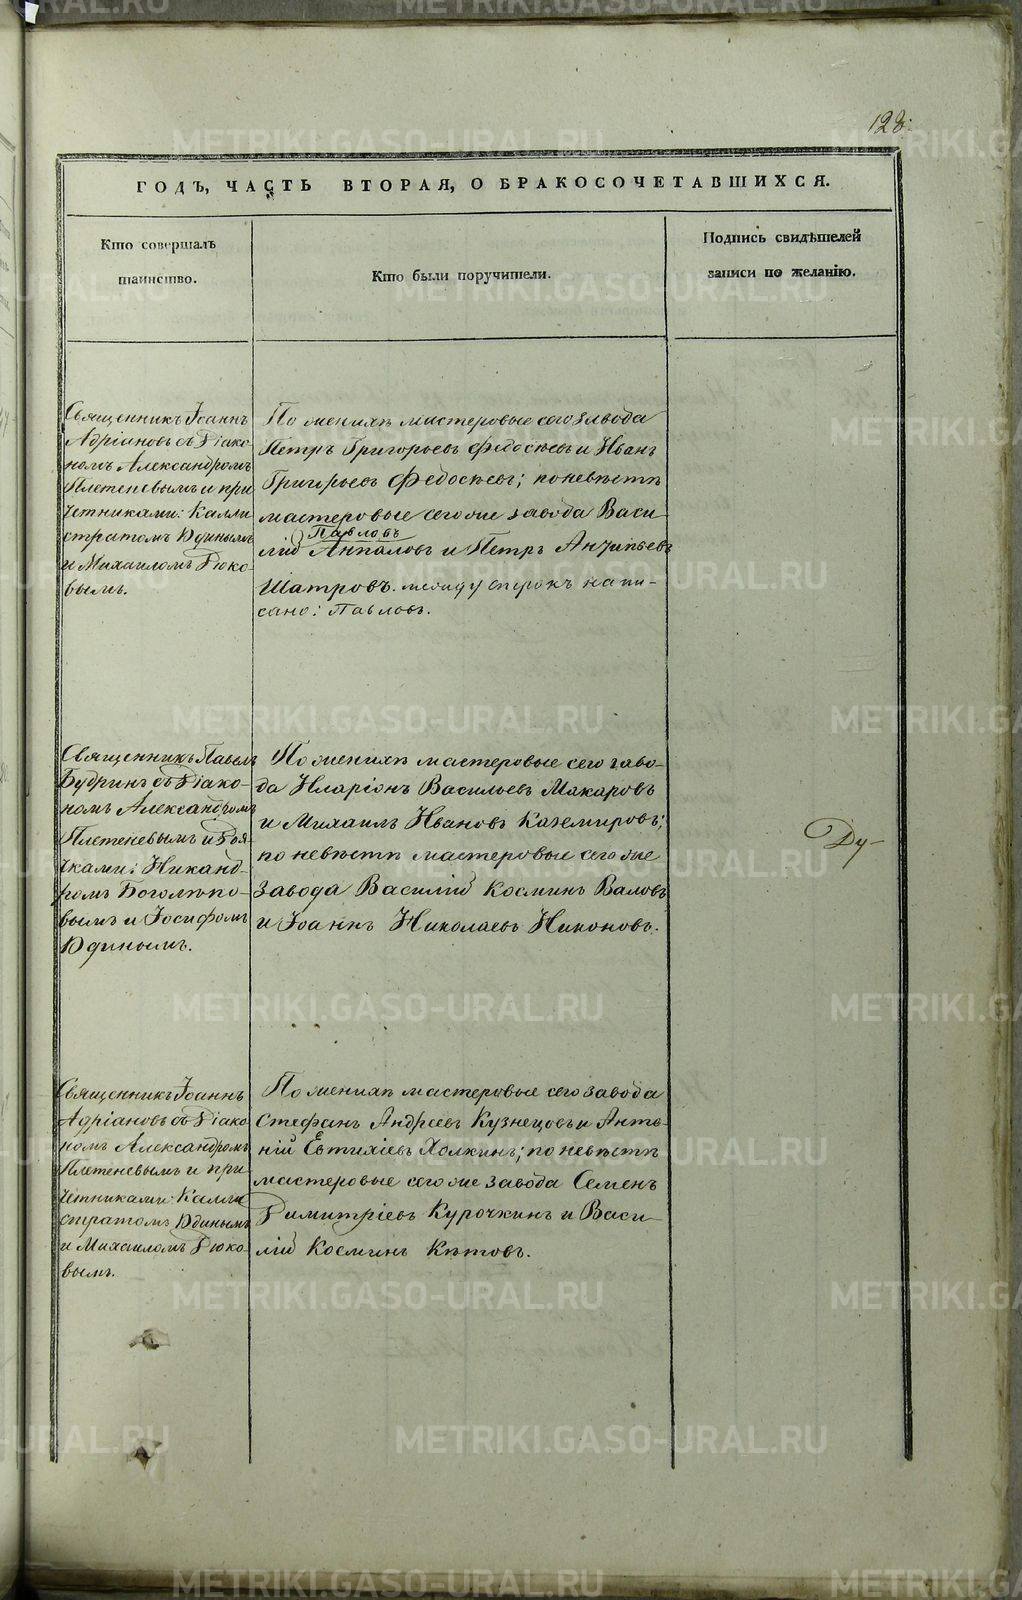 128.
ГОДЪ, ЧАСТЬ ВТОРАЯ, О БРАКОСОЧЕТАВШИХСЯ.
Кто совершалъ
таинство.
Кто были поручители.
Подпись свидѣтелей
записи по желанію.
Священникъ Іоаннъ
Адріановъ съ Діако-
номъ Александромъ
Плетеневымъ и при
четниками: Калли
стратомъ Юдинымъ
и Михаиломъ Дюко-
вымъ.
По женихѣ мастеровые сего завода
Петръ Григорьевъ Федосѣевъ и Иванъ
Григорьевъ Федосѣевъ; по невѣстѣ
мастеровые сего же завода Васи
Павловъ
лій и Петръ Антипьевъ
Шатровъ. между строкъ напи-
сано: Павловъ.
Священникъ Павелъ
Будринъ съ Діако-
номъ Александромъ
Плетеневымъ и Дья-
чками: Никанд-
ромъ Боголѣпо-
вымъ и Іосифомъ
Юдинымъ.
По женихѣ мастеровые сего заво-
да Иларіонъ Васильевъ Макаровъ
и Михаилъ Ивановъ Каземировъ;
по невѣстѣ мастеровые сего же
завода Василій Косминъ Валовъ
и Іоаннъ Николаевъ Никоновъ.
Ду-
Священникъ Іоаннъ
Адріановъ съ Діако
номъ Александромъ
Плетеневымъ и при-
четниками Калли
стратомъ Юдинымъ
и Михаиломъ Дюко-
вымъ.
По женихѣ мастеровые сего завода
Стефанъ Андреевъ Кузнецовъ и Анто-
ній Евтихіевъ Холкинъ; по невѣстѣ
мастеровые сего же завода Семенъ
Димитріевъ Курочкинъ и Васи-
лій Косминъ Кѣтовъ.
METRIKI.GASO-URAL.RU